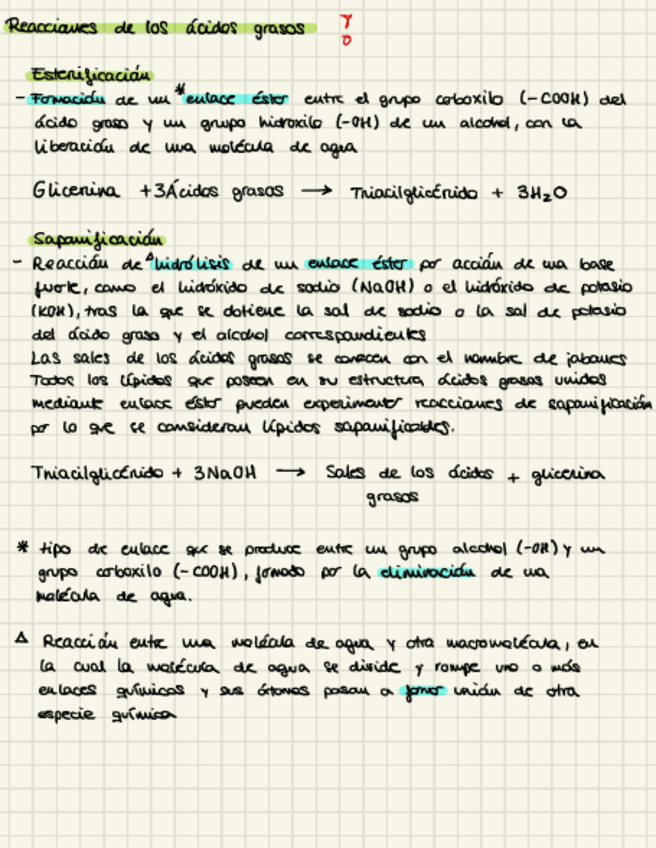 Reacciones de los ácidos grasos
Esterificación
- Formación de un * enlace éster entre el grupo carboxilo (-COOH) del
ácido graso y un grupo hidroxilo (-OH) de un alcohol, con la
liberación de una molécula de agua
Glicerina + 3Ácidos grasos → Triacilglicérido + 3H₂O
Saponificación
- Reacción de △ hidrólisis de un enlace éster por acción de una base
fuerte, como el hidróxido de sodio (NaOH) o el hidróxido de potasio
(KOH), tras la que se obtiene la sal de sodio o la sal de potasio
del ácido graso y el alcohol correspondientes
Las sales de los ácidos grasos se conocen con el nombre de jabones
Todos los lípidos que poseen en su estructura ácidos grasos unidos
mediante enlace éster pueden experimentar reacciones de saponificación
por lo que se consideran lípidos saponificables.
Triacilglicérido + 3NaOH → Sales de los ácidos + glicerina
grasos
* tipo de enlace que se produce entre un grupo alcohol (-OH) y un
grupo carboxilo (-COOH), formado por la eliminación de una
molécula de agua.
△ Reacción entre una molécula de agua y otra macromolécula, en
la cual la molécula de agua se divide y rompe uno o más
enlaces químicos y sus átomos pasan a formar unión de otra
especie química